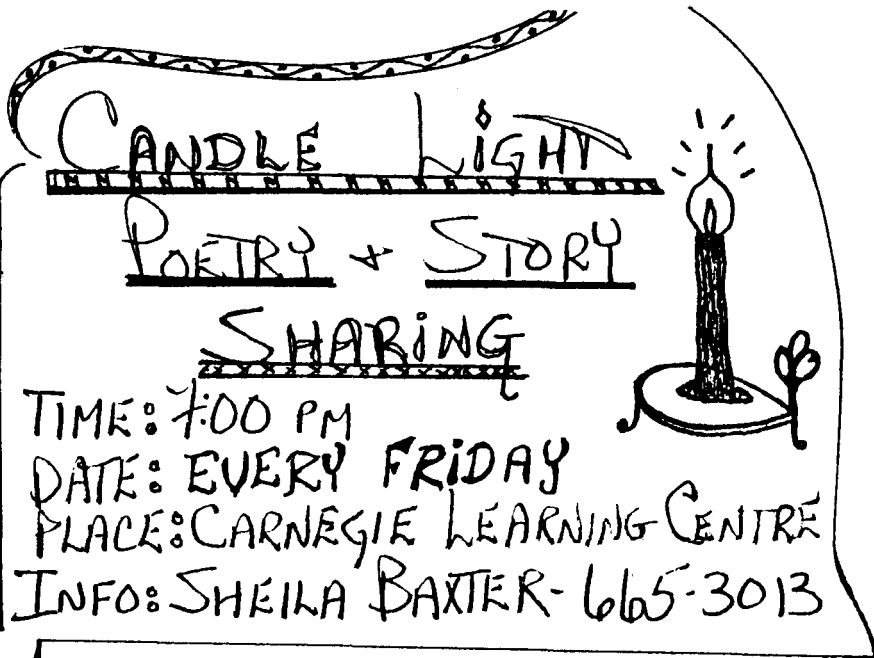 CANDLE LIGHT
POETRY + STORY
SHARING
TIME: 7:00 PM
DATE: EVERY FRIDAY
PLACE: CARNEGIE LEARNING CENTRE
INFO: SHEILA BAXTER - 665-3013